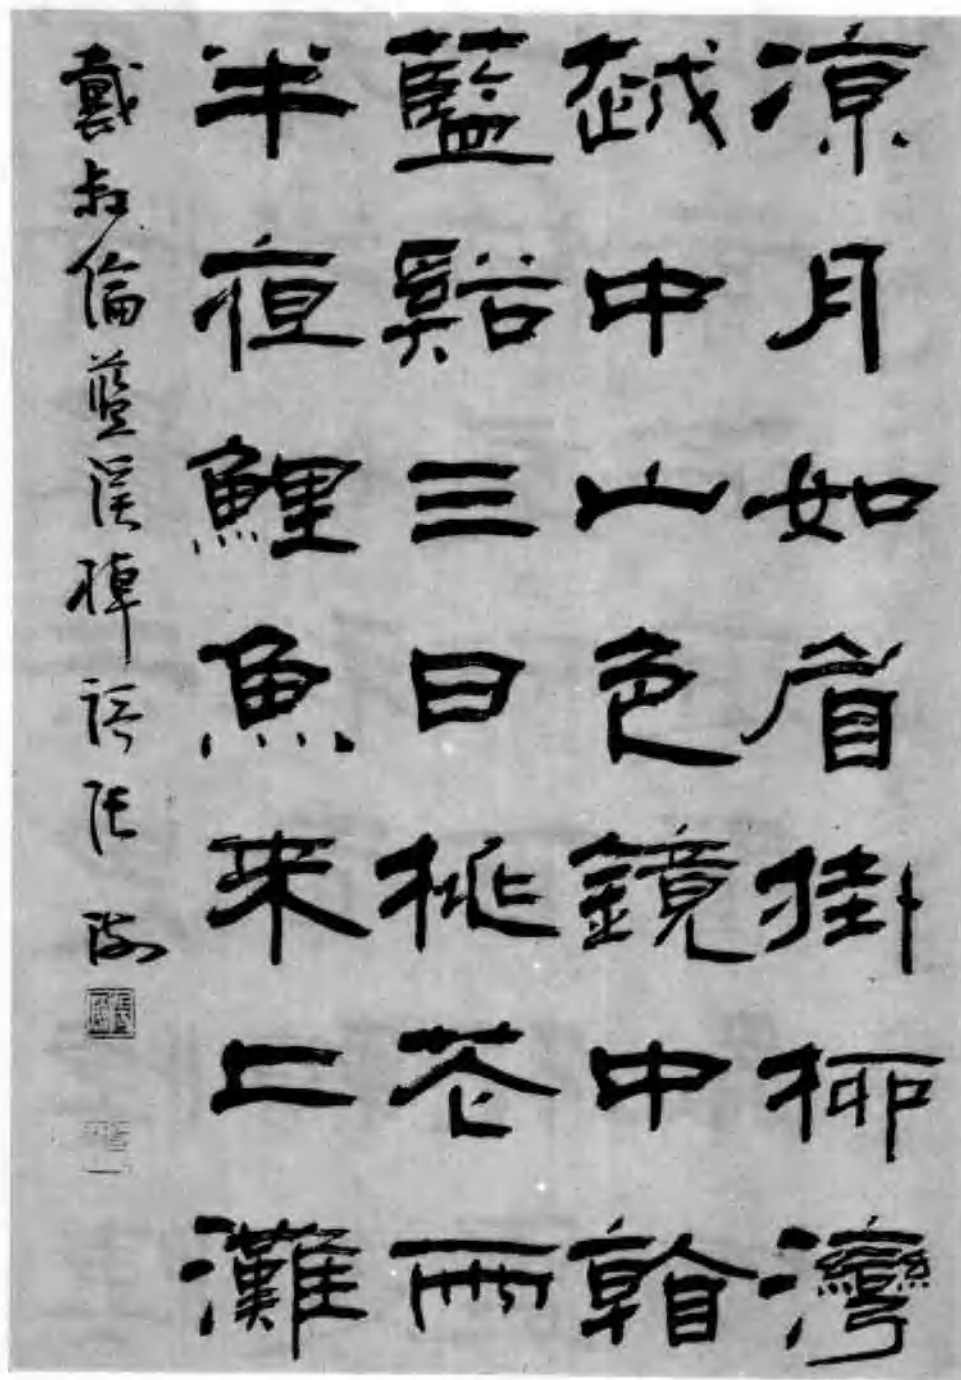 涼月如眉掛柳灣
越中山色鏡中看
藍谿三日桃花雨
半夜鯉魚來上灘
戴叔倫藍溪棹謌 張